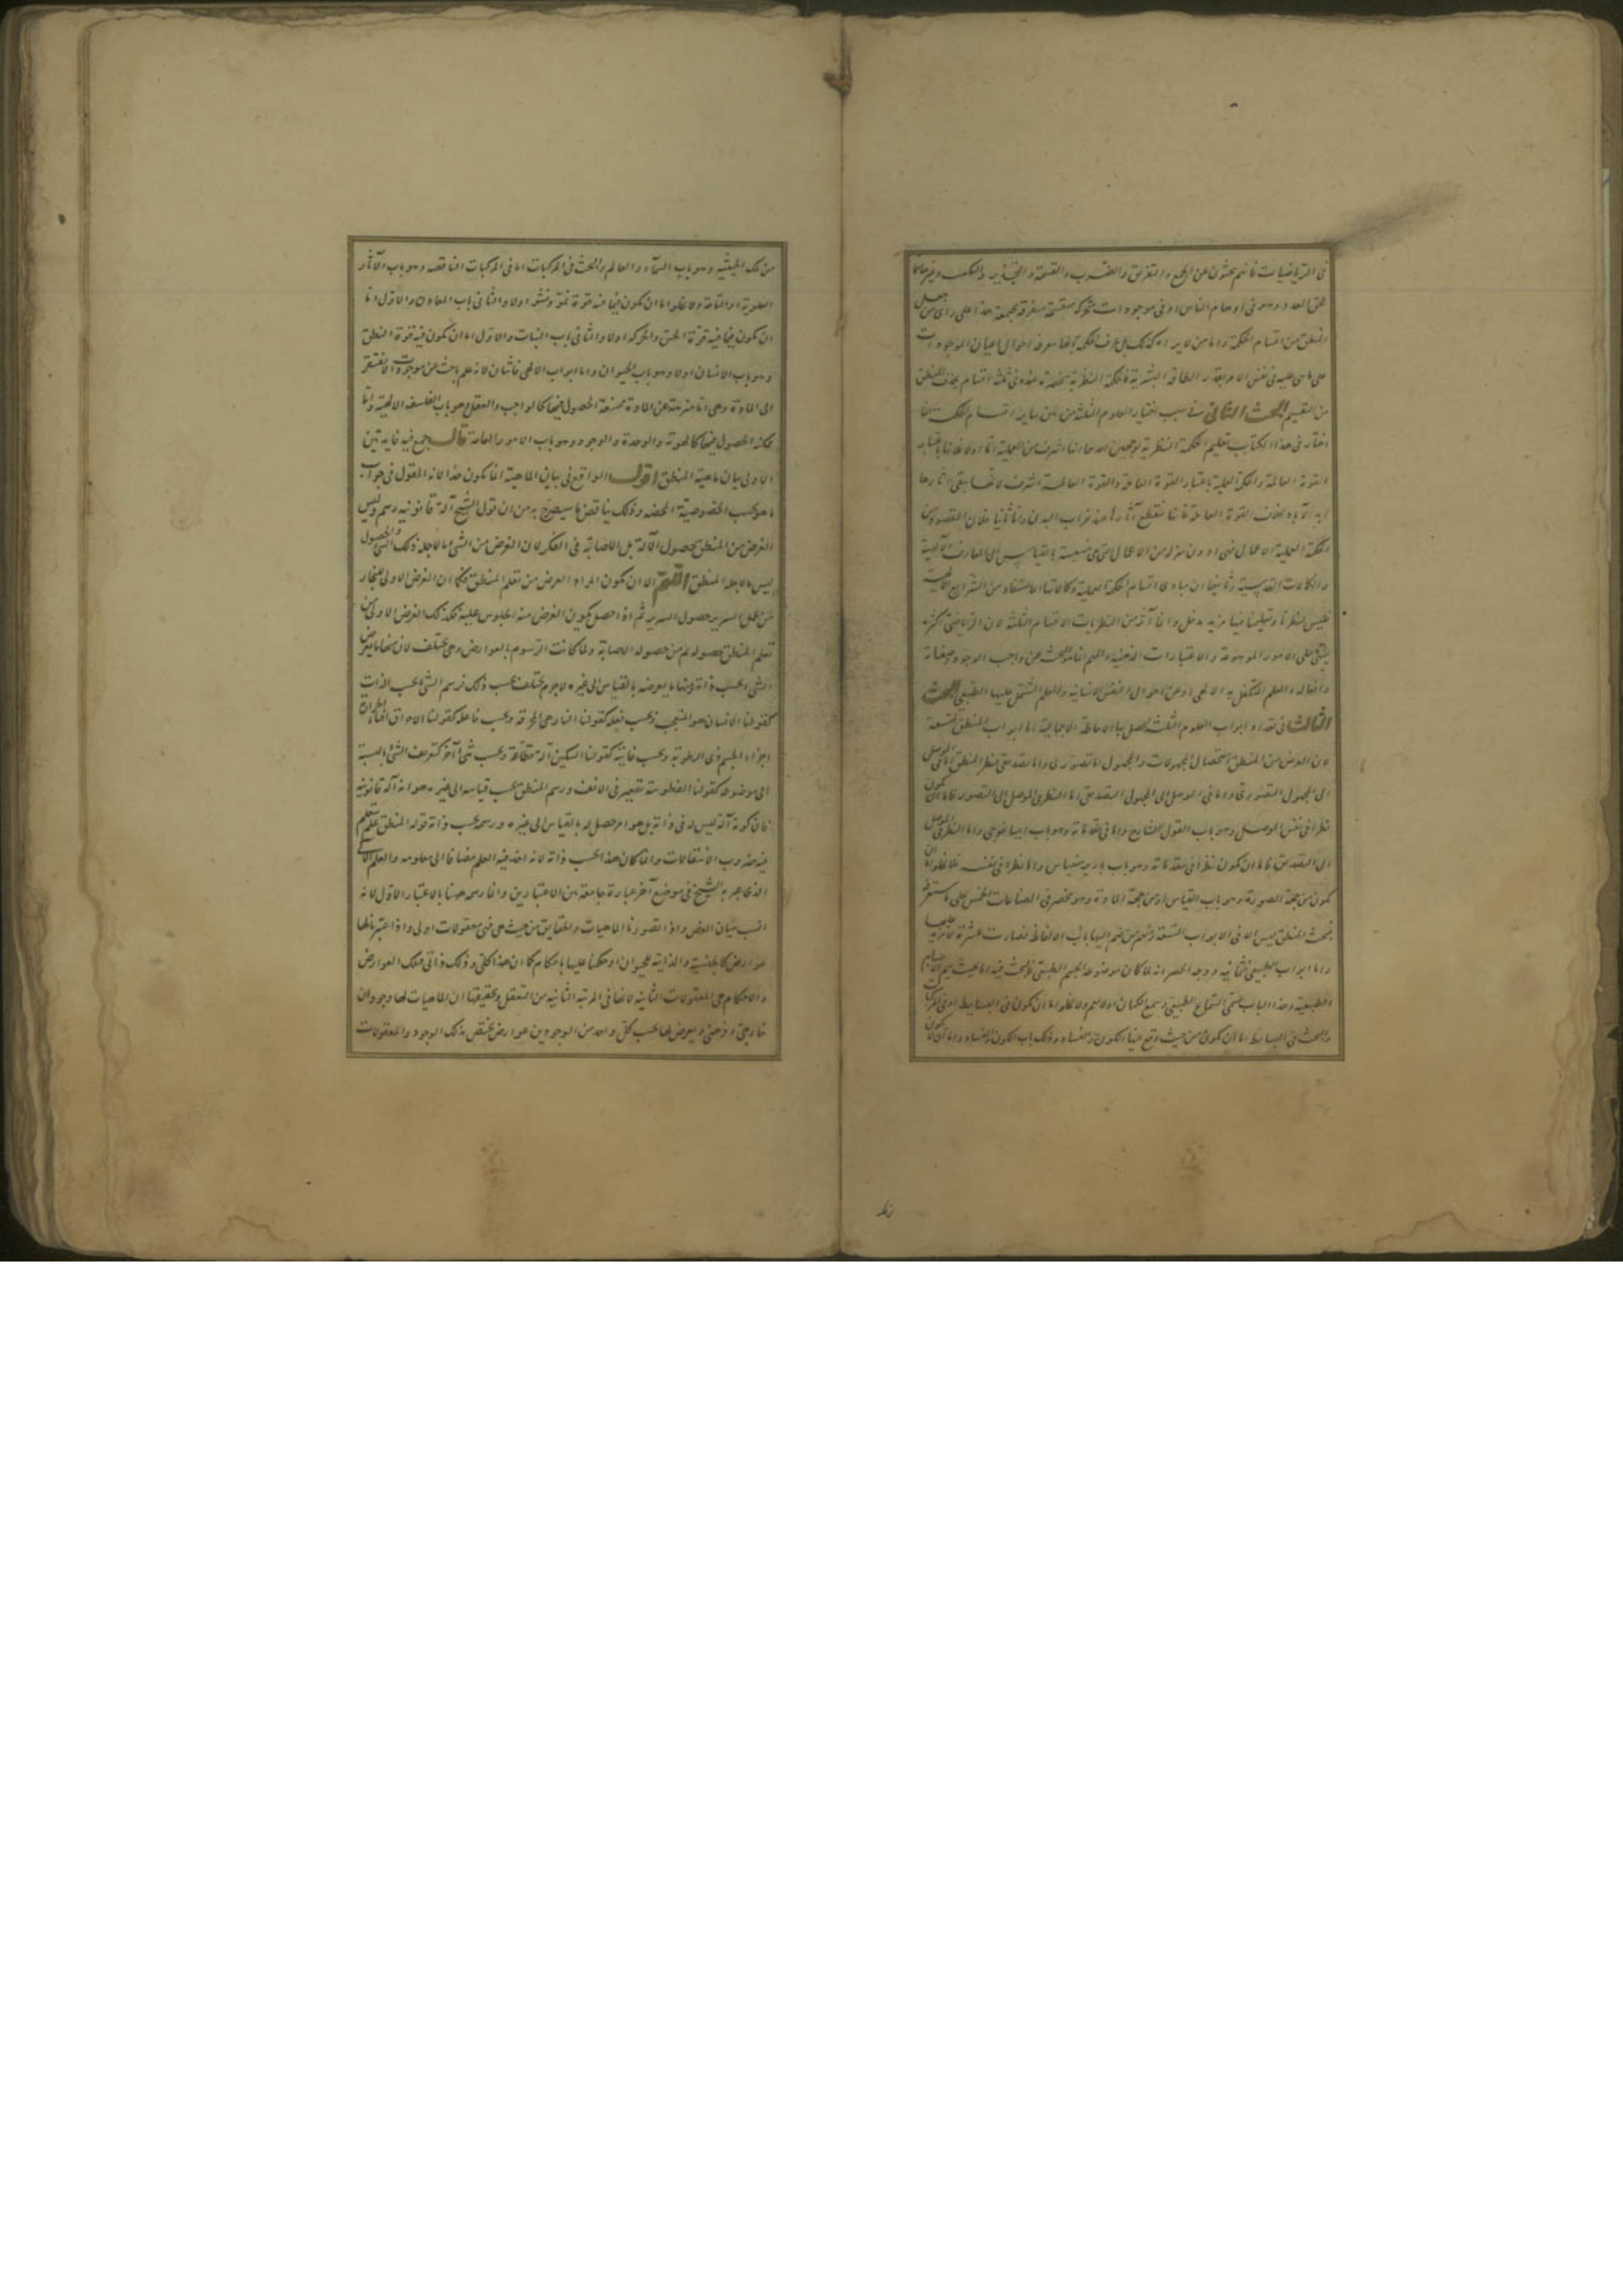 فى الرياضيات فانهم يبحثون عن الجمع والتفريق والضرب والقسمة والتجذير والتكعيب وغيرها مما
يلحق العدد وهو فى اوهام الناس او فى موجودات متحركة منقسمة متفرقة مجتمعة هذا على راى من جعل
المنطق من اقسام الحكمة واما من لا يراه كذلك بل عرف الحكمة بانها معرفة احوال اعيان الموجودات
على ما هى عليه فى نفس الامر بقدر الطاقة البشرية فالحكمة النظرية منحصرة عنده فى ثلثة اقسام بحذف المنطق
من التقسيم البحث الثانى فى سبب اختيار العلوم الثلثة من بين ساير اقسام الحكمة انما
اختار فى هذا الكتاب تعليم الحكمة النظرية لوجهين احدهما انها اشرف من العملية اما اولا فلانها باعتبار
القوة العالمة والحكمة العملية باعتبار القوة العاملة والقوة العالمة اشرف لانها يبقى اثارها
ابد الآباد بخلاف القوة العاملة فانها منقطع آثارها عند خراب البدن واما ثانيا فلان المقصود من
الحكمة العملية الاعمال فهى ادون منزلة من الاعمال التى هى خسيسة بالقياس الى المعارف الالهية
والكمالات القدسية وثانيهما ان مبادى اقسام الحكمة العملية وكمالاتها مستفاد من الشرايع الالهية
فليس لنظرنا وتعليمنا فيها مزيد مدخل وانما آثر من النظريات الاقسام الثلثة لان الرياضى اكثره
يبتنى على الامور الموهومة والاعتبارات الذهنية والمهم انما هو البحث عن واجب الوجود وصفاته
وافعاله والعلم المتكفل به الالهى او عن احوال النفس الانسانية والعلم المشتمل عليها الطبيعى البحث
الثالث فى تعداد ابواب العلوم الثلث ليحصل بها الاحاطة الاجمالية اما ابواب المنطق فتسعة
لان الغرض من المنطق استحصال المجهولات والمجهول اما تصورى واما تصديقى فنظر المنطق اما فى الموصل
الى المجهول التصورى واما فى الموصل الى المجهول التصديقى اما النظر فى الموصل الى التصور فاما ان يكون
نظرا فى نفس الموصل وهو باب القول الشارح واما فى مقدماته وهو باب ايساغوجى واما النظر فى الموصل
الى التصديق فاما ان يكون نظرا فى مقدماته وهو باب بارى‌ارمينياس واما نظرا فى نفسه فلا يخلو اما ان
يكون من جهة الصورة وهو باب القياس او من جهة المادة وهو منحصر فى الصناعات الخمس على ما ستعرفه
فبحث المنطق ليس الا فى الابواب التسعة ومنهم من ضم اليها باب الالفاظ فصارت عشرة
واما ابواب الطبيعى فثمانية ووجه الحصر انه لما كان موضوعه الجسم الطبيعى فالبحث فيه اما بحيث يعم الاجسام
الطبيعية وهذا الباب يسمى السماع الطبيعى وسمع الكيان اولا يعم ولا يخلو اما ان يكون فى البسايط او فى المركبات
والبحث فى البسايط اما ان يكون من حيث وقع فيها الكون والفساد وذلك باب الكون والفساد واما ان لا يكون
من تلك الحيثية وهو باب السماء والعالم والبحث فى المركبات اما فى المركبات الناقصة وهو باب الآثار
العلوية او التامة ولا يخلو اما ان يكون فيما فيه قوة نمو ونشو اولا والثانى باب المعادن والاول اما
ان يكون فيما فيه قوة الحس والحركة اولا والثانى باب النبات والاول اما ان يكون فيه قوة النطق
وهو باب الانسان اولا وهو باب الحيوان واما ابواب الالهى فاثنان لانه علم باحث عن موجودات لا يفتقر
الى المادة وهى اما منزهة عن المادة ممتنعة الحصول فيها كالواجب والعقل وهو باب الفلسفة الالهية واما
ممكنة الحصول فيها كالهوية والوحدة والوجود وهو باب الامور العامة قال جمع فيه فايدتين
الاولى بيان ماهية المنطق اقول الواقع فى بيان الماهية انما يكون حدا لانه المقول فى جواب
ما هو بحسب الخصوصية المحضة وذلك يناقض ما سيصرح به من ان قول الشيخ آلة قانونية رسم وليس
الغرض من المنطق حصول الآلة بل الاصابة فى الفكر لان الغرض من الشئ ما لاجله ذلك الشئ والحصول
ليس ما لاجله المنطق اللهم الا ان يكون المراد الغرض من تعلم المنطق فكما ان الغرض الاولى للنجار
من عمل السرير حصول السرير ثم اذا حصل يكون الغرض منه الجلوس عليه فكذلك الغرض الاولى من
تعلم المنطق حصوله ثم من حصوله الاصابة ولما كانت الرسوم بالعوارض وهى مختلف لان منها ما يعرض
الشئ بحسب ذاته ومنها ما يعرضه بالقياس الى غيره لاجرم يختلف بحسب ذلك فرسم الشئ بحسب الذات
كقولنا الانسان هو المتعجب وبحسب فعله كقولنا النار هى المحرقة وبحسب فاعله كقولنا الاحراق افناء الحرارة
اجزاء الجسم ذى الرطوبة وبحسب غايته كقولنا السكين آلة قطاعة وبحسب شئ آخر كتعريف الشئ بالنسبة
الى موضوعه كقولنا الفطوسة تقعير فى الانف ورسم المنطق بحسب قياسه الى غيره هو انه آلة قانونية
فان كونه آلة ليس له فى ذاته بل هو امر حصل له بالقياس الى غيره ورسمه بحسب ذاته قوله المنطق علم يتعلم
فيه ضروب الانتقالات وانما كان هذا بحسب ذاته لانه اخذ فيه العلم مضافا الى معلومه والعلم
الذى عبر به الشيخ فى موضع آخر عبارة جامعة بين الاعتبارين وانما رسمه ههنا بالاعتبار الاول لانه
انسب ببيان الغرض واذا تصورنا الماهيات والحقايق من حيث هى فهى معقولات اولى واذا اعتبرنا لها
عوارض كالجنسية والذاتية للحيوان او حكمنا عليها باحكام كما ان هذا كلى وذلك ذاتى فتلك العوارض
والاحكام هى المعقولات الثانية لانها فى المرتبة الثانية من التعقل وتحقيقها ان للماهيات لها وجودان
خارجى وذهنى ويعرض لها بحسب كل واحد من الوجودين عوارض تختص بذلك الوجود والمعقولات